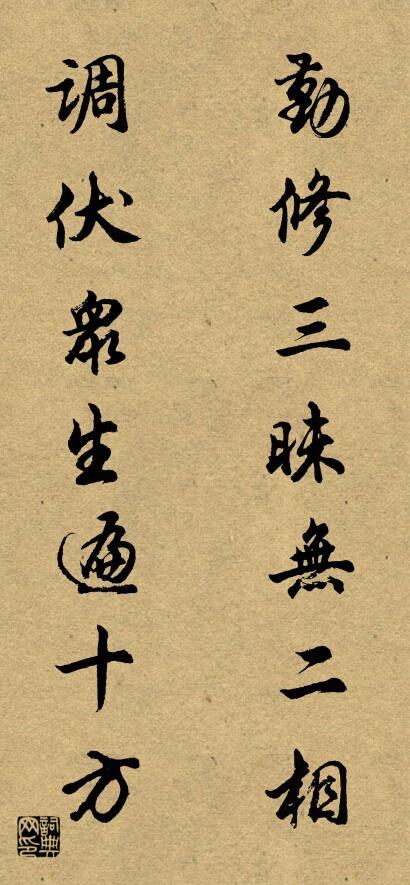 勤修三昧無二相
調伏衆生遍十方
詞典网印